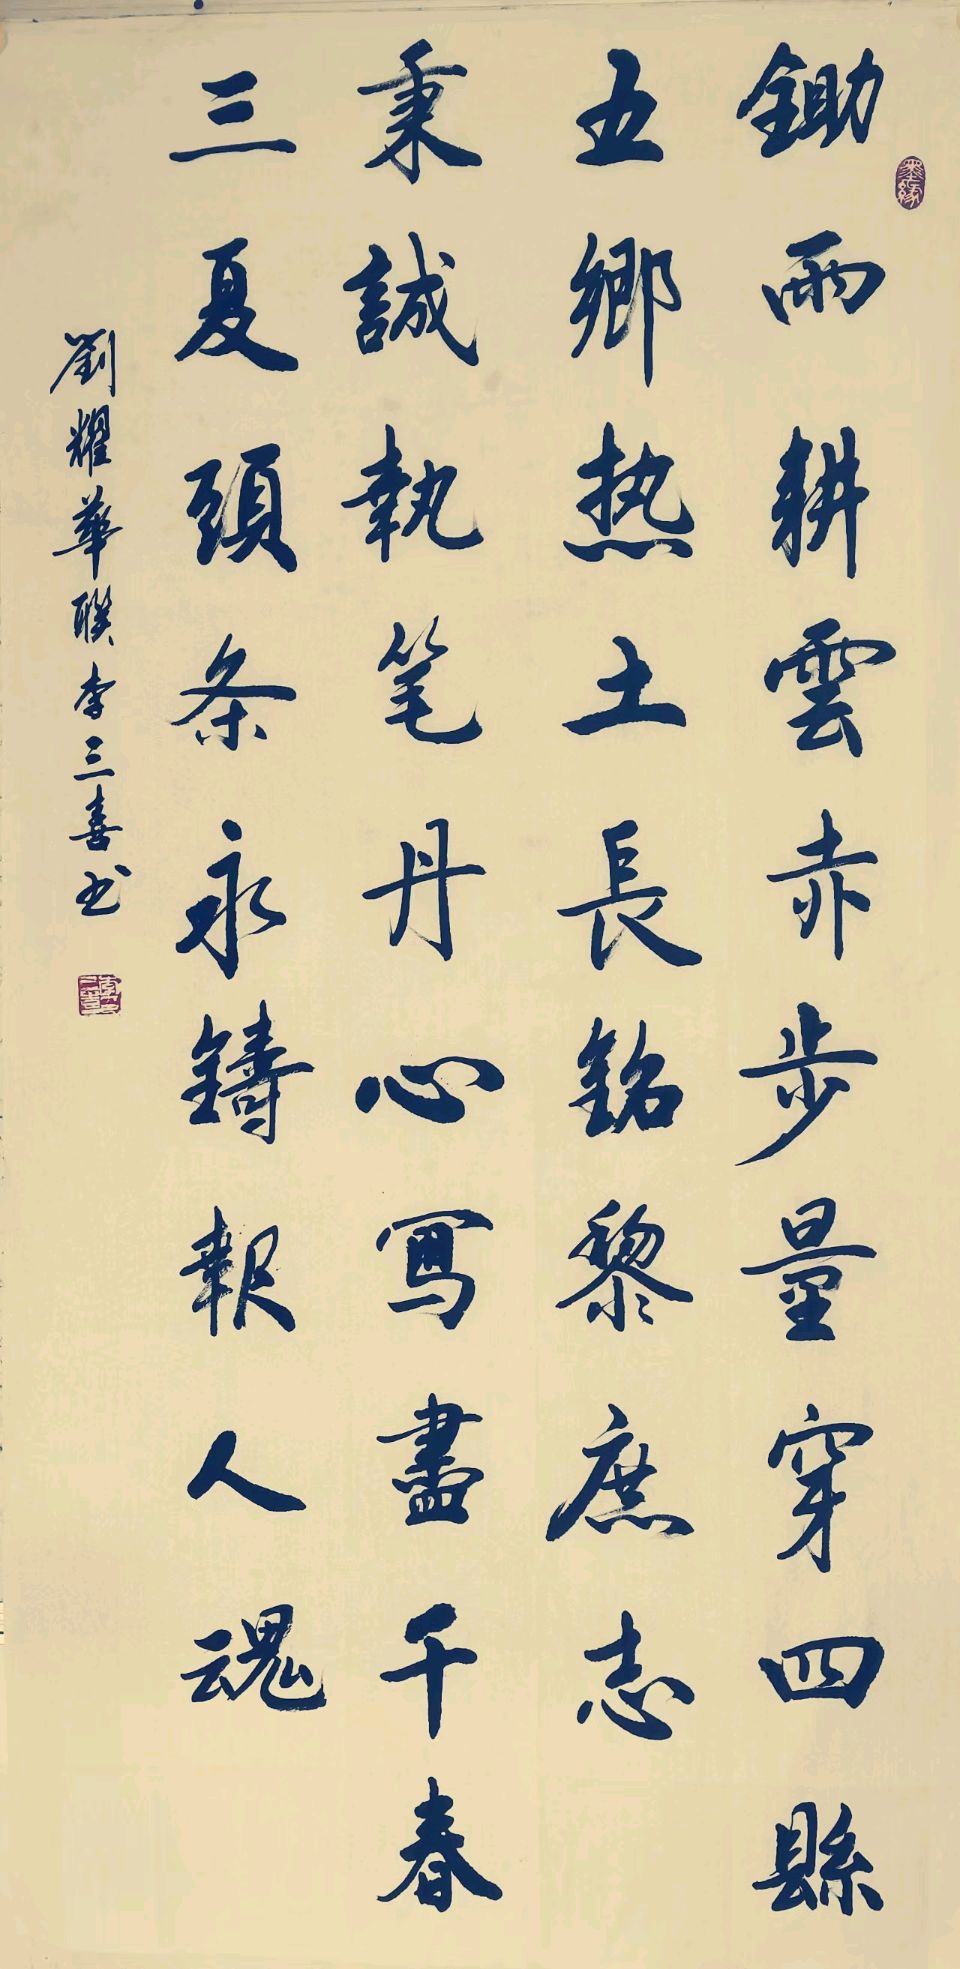 鋤雨耕雲赤步量穿四縣
五鄉热土長銘黎庶志
秉誠執笔丹心寫盡千春
三夏頭条永鑄報人魂
劉耀華聯李三喜书
墨緣